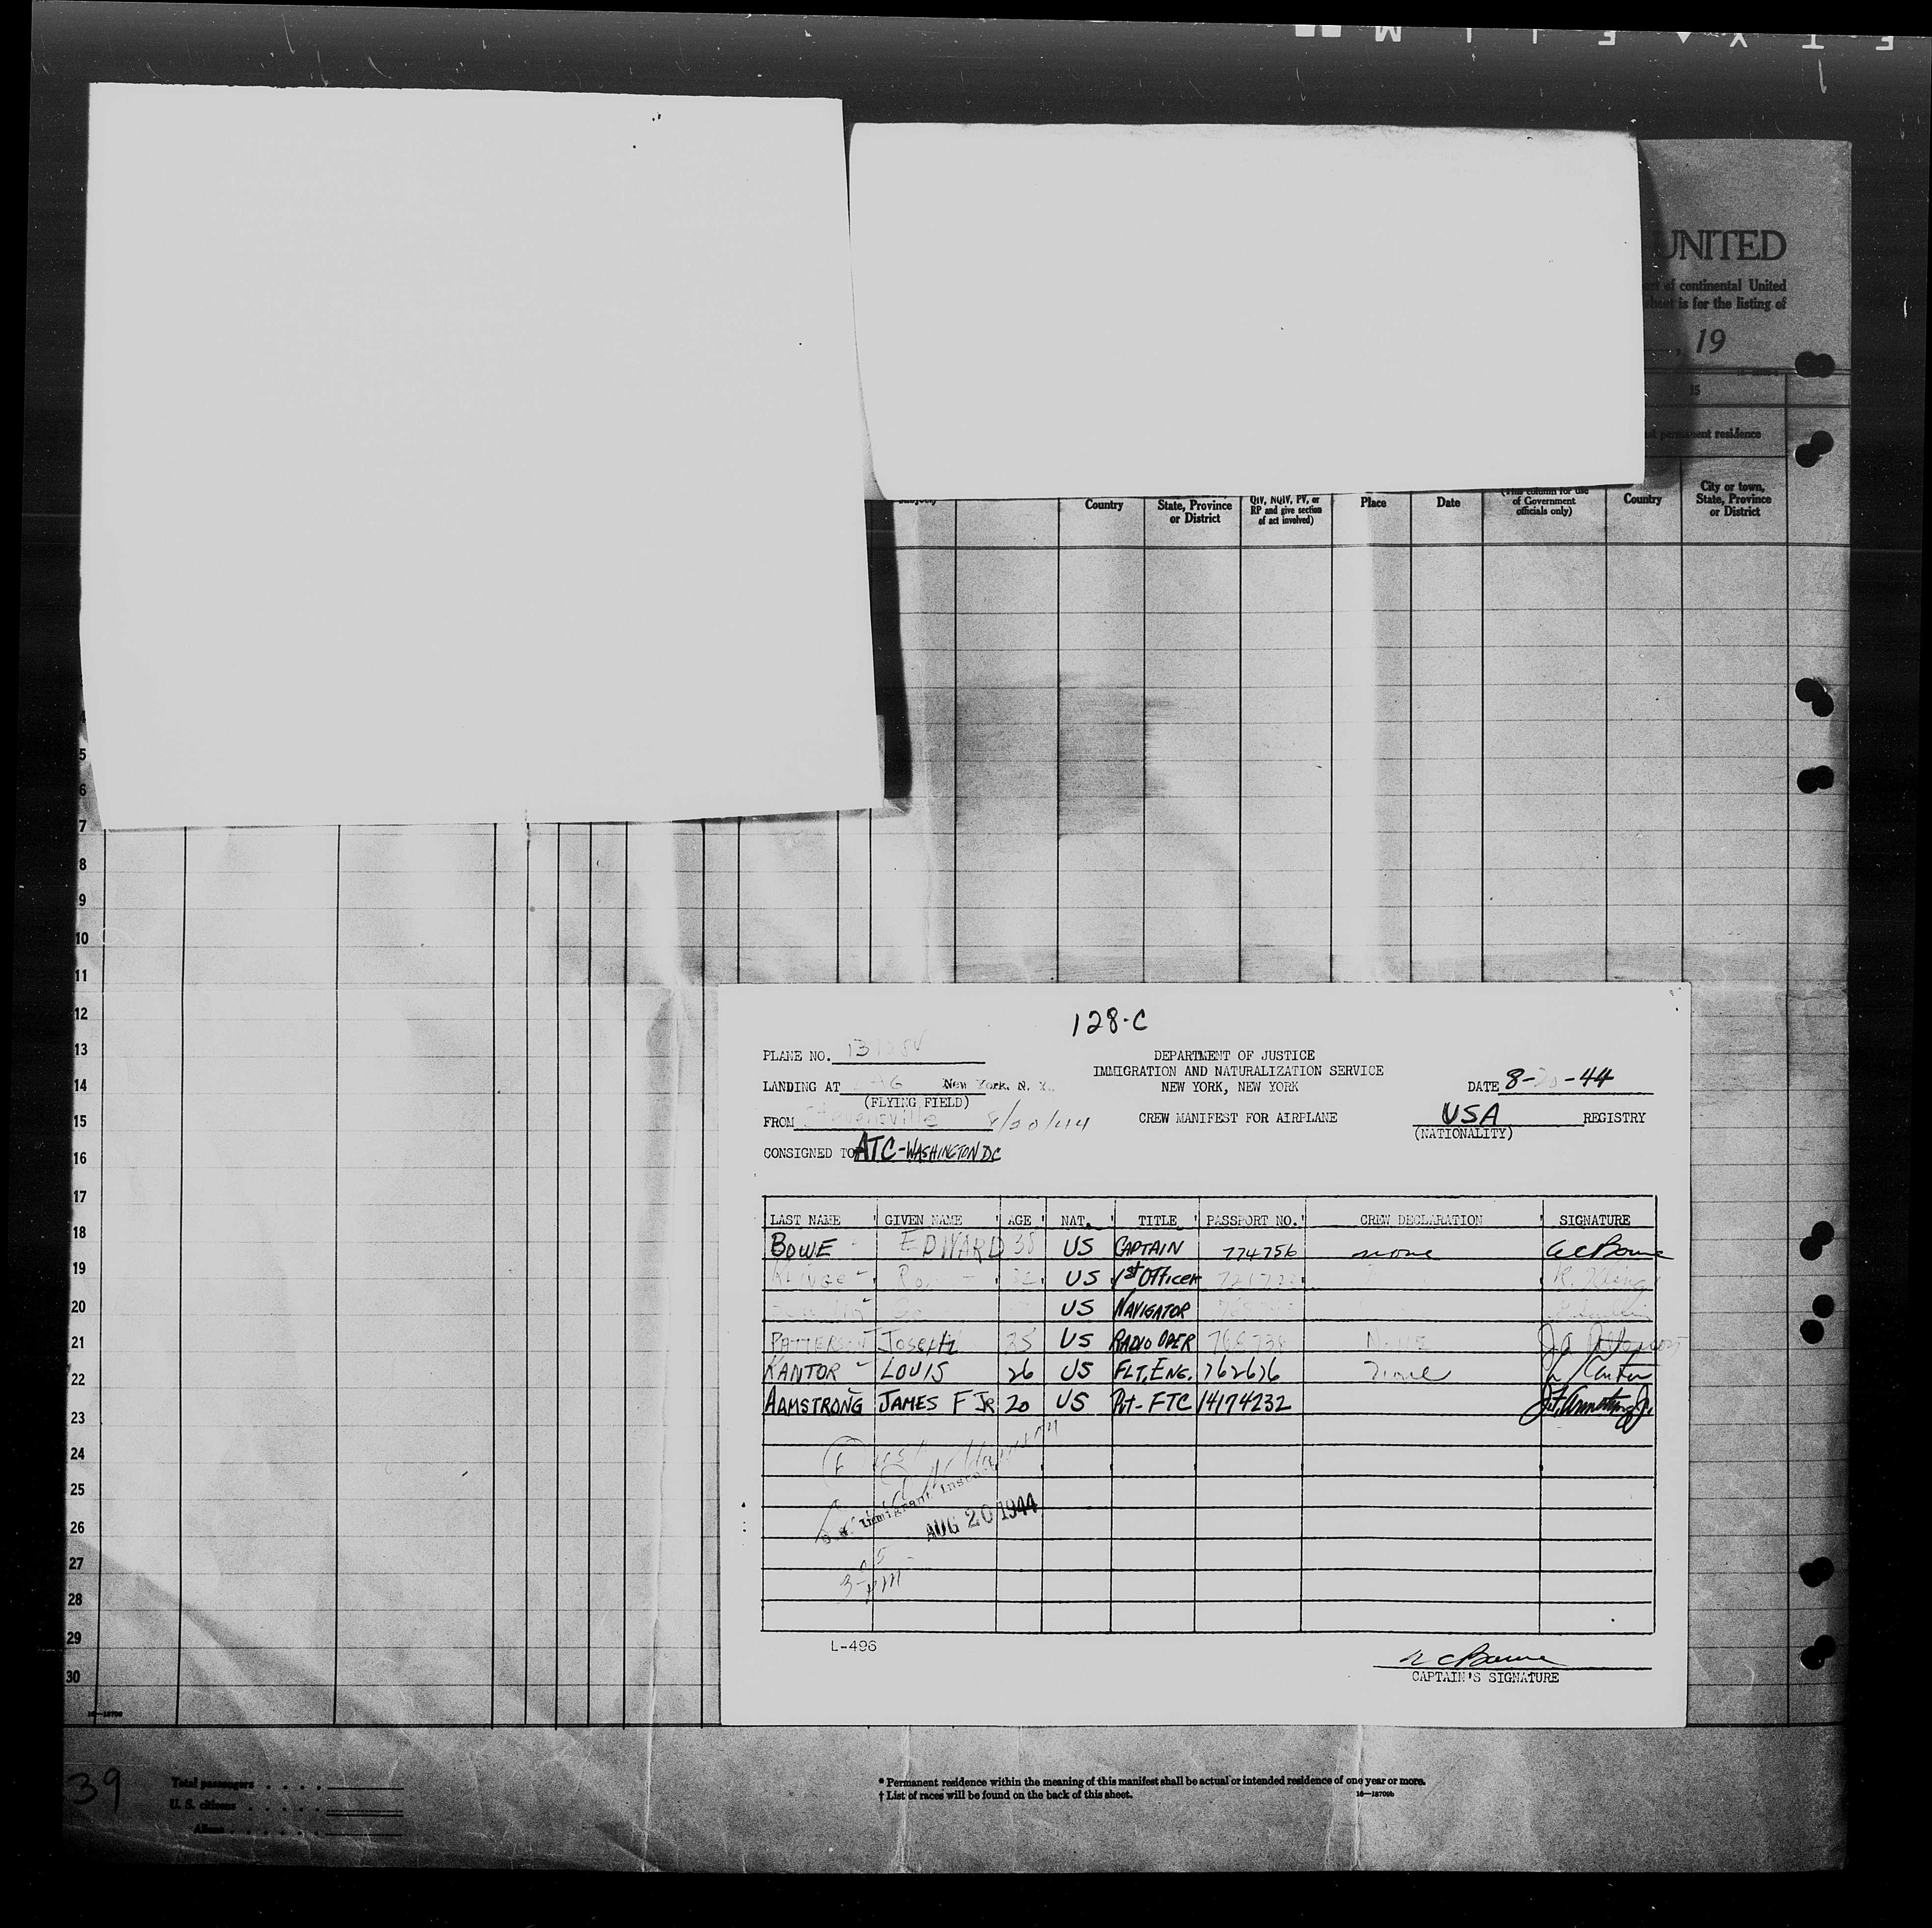 UNITED
of continental United
is for the listing of
, 19
15
permanent residence
Country
State, Province
or District
QIV, NQIV, PV, or
RP and give section
of act involved)
Place
Date
(This column for use
of Government
officials only)
Country
City or town,
State, Province
or District
5
6
7
8
9
10
11
12
13
14
15
16
17
18
19
20
21
22
23
24
25
26
27
28
29
30
128-C
PLANE NO.
DEPARTMENT OF JUSTICE
IMMIGRATION AND NATURALIZATION SERVICE
NEW YORK, NEW YORK
LANDING AT New York, N. Y.
(FLYING FIELD)
DATE 8-20-44
FROM 8/20/44
CREW MANIFEST FOR AIRPLANE
USA REGISTRY
(NATIONALITY)
CONSIGNED TO ATC-WASHINGTON DC
LAST NAME GIVEN NAME AGE NAT. TITLE PASSPORT NO. CREW DECLARATION SIGNATURE
BOWE - EDWARD 38 US CAPTAIN 774756 none
US 1st OFFICER
US NAVIGATOR
PATTERSON JOSEPH 35 US RADIO OPER 766738 None
KANTOR - LOUIS 26 US FLT. ENG. 762676 None
ARMSTRONG JAMES F JR 20 US Pvt-FTC 14174232
U. S. Immigrant Inspector
AUG 20 1944
L-496
CAPTAIN'S SIGNATURE
16—18709
39
Total passengers
U. S. citizens
Aliens
* Permanent residence within the meaning of this manifest shall be actual or intended residence of one year or more.
† List of races will be found on the back of this sheet.
16—18709b